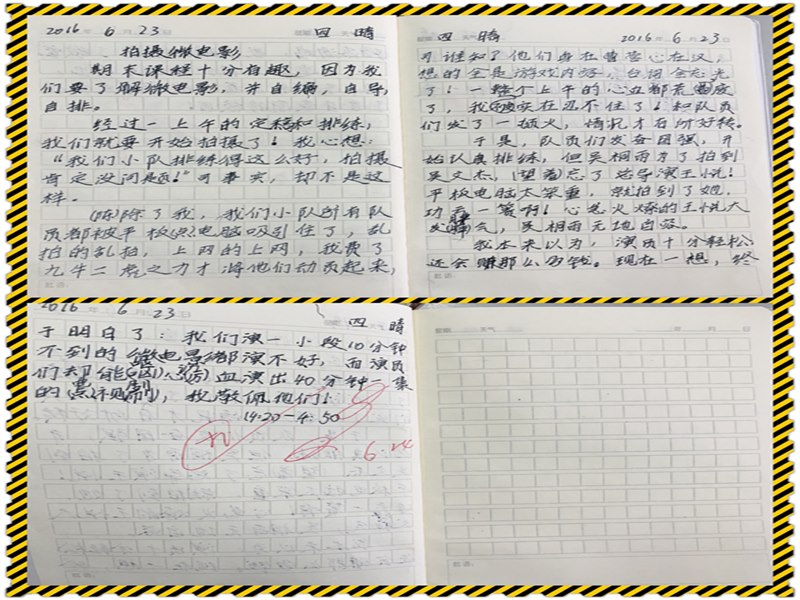 2016 年 6 月 23 日 四 晴
拍摄微电影
期末课程十分有趣，因为我
们要了解微电影，并自编，自导，
自排。
经过一上午的定稿和排练，
我们就要开始拍摄了！我心想：
“我们小队排练得这么好，拍摄
肯定没问题！”可事实，却不是这
样。
除了我，我们小队所有队
员都被平板电脑吸引住了，乱
拍的乱拍，上网的上网，我费了
九牛二虎之力才将他们动员起来，
批语：
四 晴 2016 年 6 月 23 日
可谁知？他们身在曹营心在汉，
想的全是游戏内容，台词全忘光
了！一整个上午的心血都荒废
了，我实在忍不住了！和队员
们发了一顿火，情况才有所好转。
于是，队员们发奋图强，开
始认真排练，但吴相雨为了拍到
吴文杰，忘了给导演王悦！
平板电脑太笨重，就拍到了她，
功亏一篑啊！心急火燎的王悦大
发脾气，吴相雨无地自容。
我本来以为，演员十分轻松，
还会赚那么多钱。现在一想，终
批语：
2016 年 6 月 23 日 四 晴
于明白了：我们演一小段10分钟
不到的微电影都演不好，而演员
们却能呕心沥血演出40分钟一集
的电视剧，我敬佩他们！
14:20-4:50
6.24
天气 年 月 日
批语：
批语：